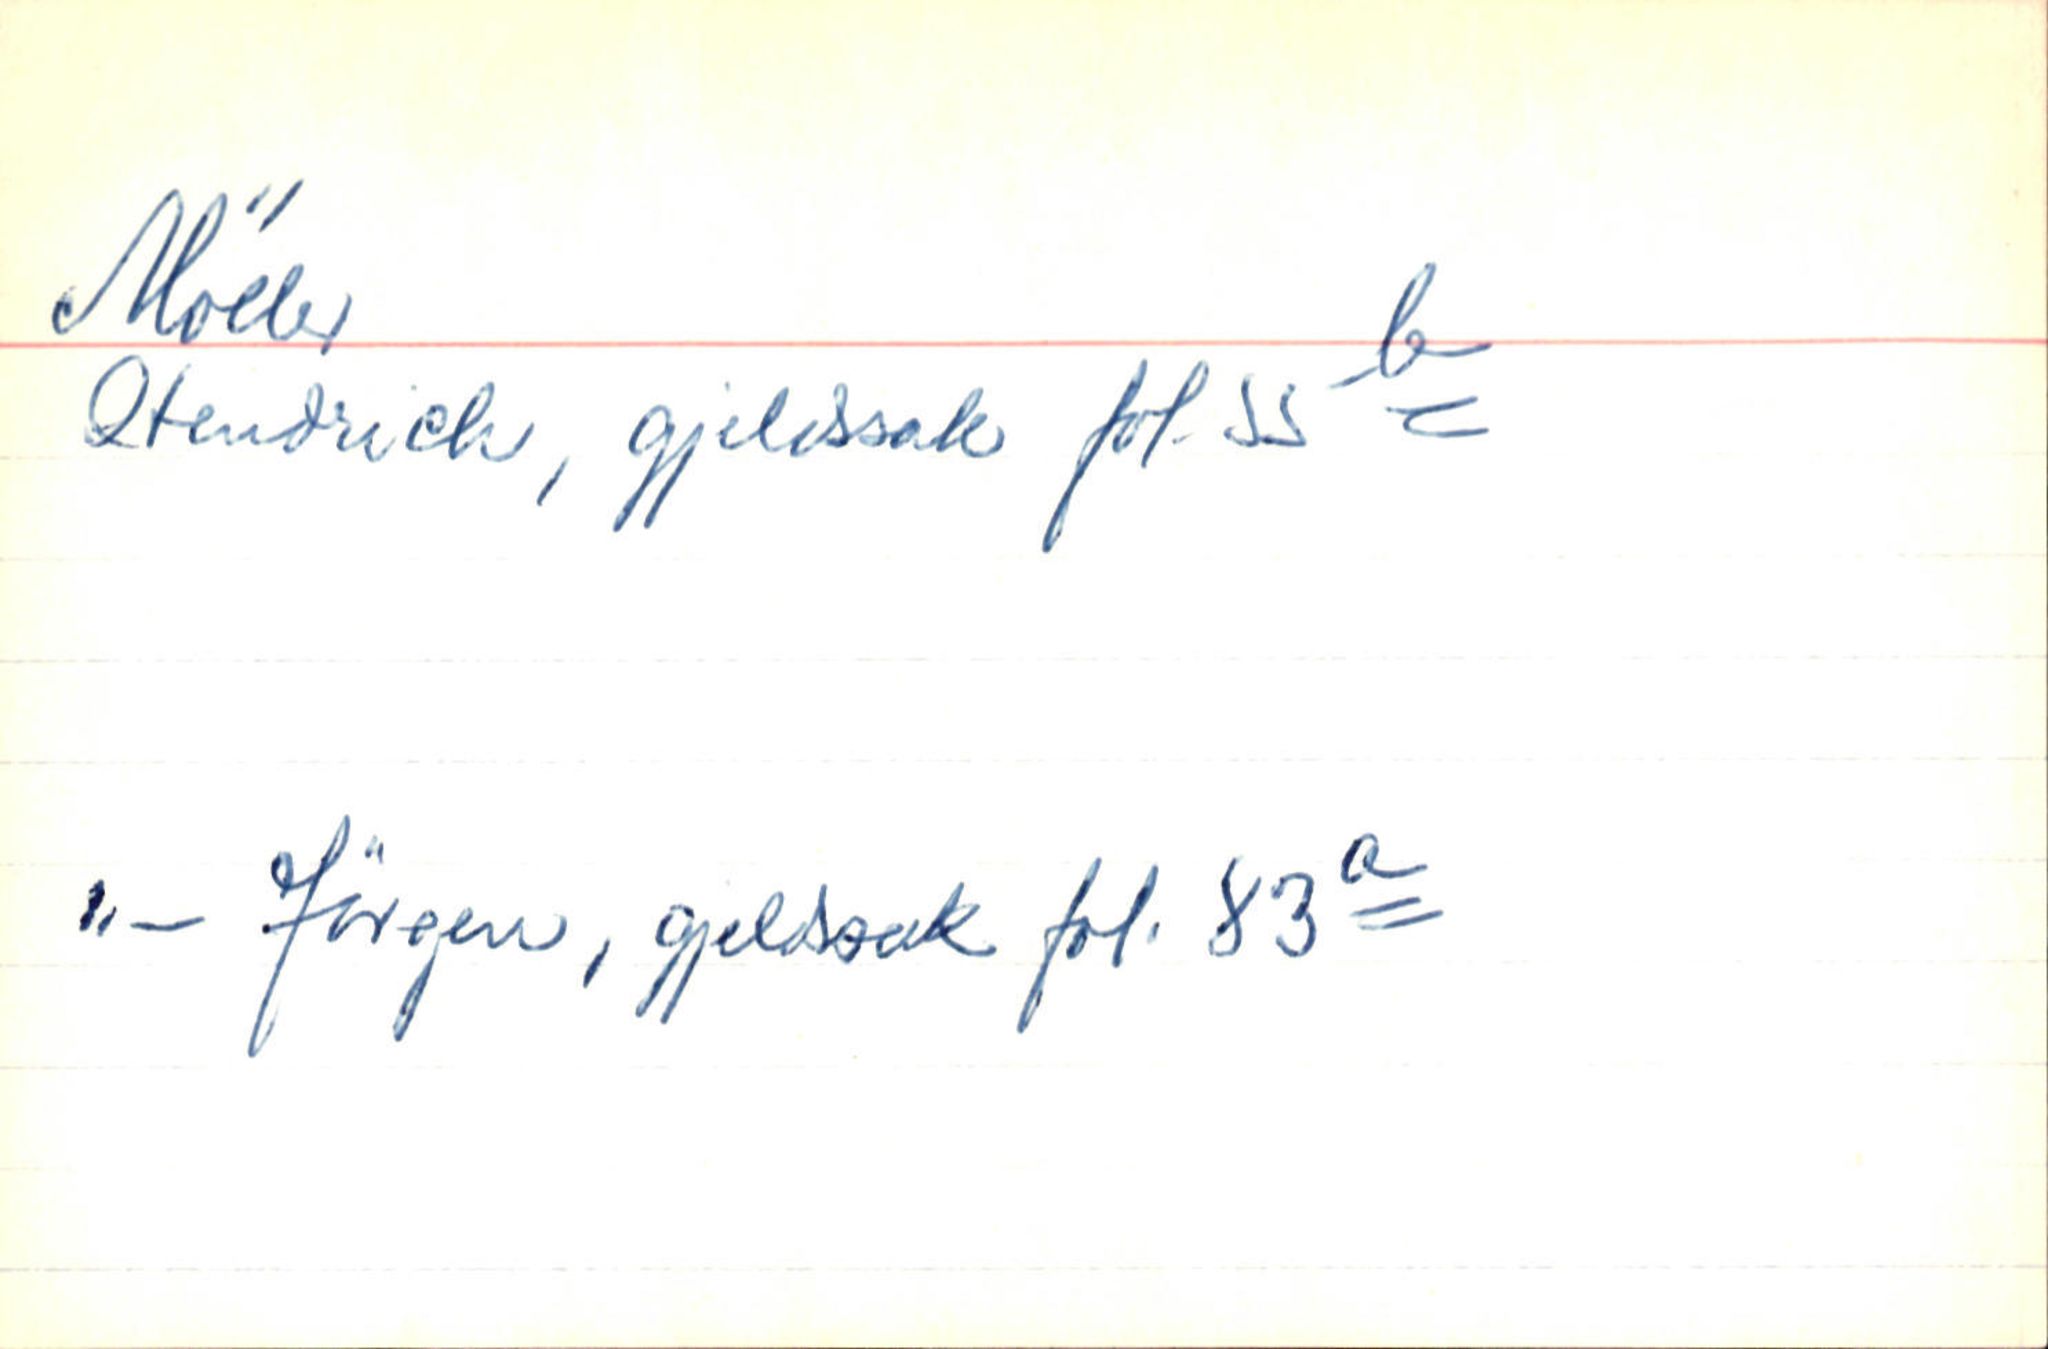 Möller
Hendrich, gjeldssak fol. 55 b
"- Jörgen, gjeldssak fol. 83 a